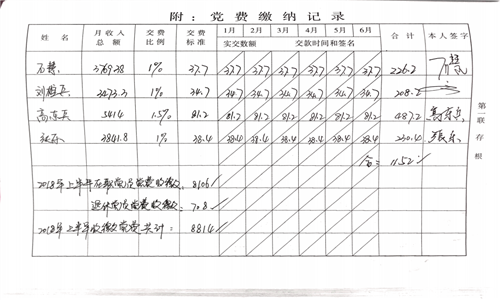 附：党费缴纳记录
姓名 月收入总额 交费比例 交费标准 1月 2月 3月 4月 5月 6月 合计 本人签字
实交数额 交款时间和签名
石慧 3769.28 1% 37.7 37.7 37.7 37.7 37.7 37.7 37.7 226.2
3473.3 1% 34.7 34.7 34.7 34.7 34.7 34.7 34.7 208.2
5414 1.5% 81.2 81.2 81.2 81.2 81.2 81.2 81.2 487.2
3841.8 1% 38.4 38.4 38.4 38.4 38.4 38.4 38.4 230.4
合： 1152
2018年上半年在职党员党费收缴： 8106
退休党员党费收缴： 708
2018年上半年收缴党费共计： 8814
第一联存根